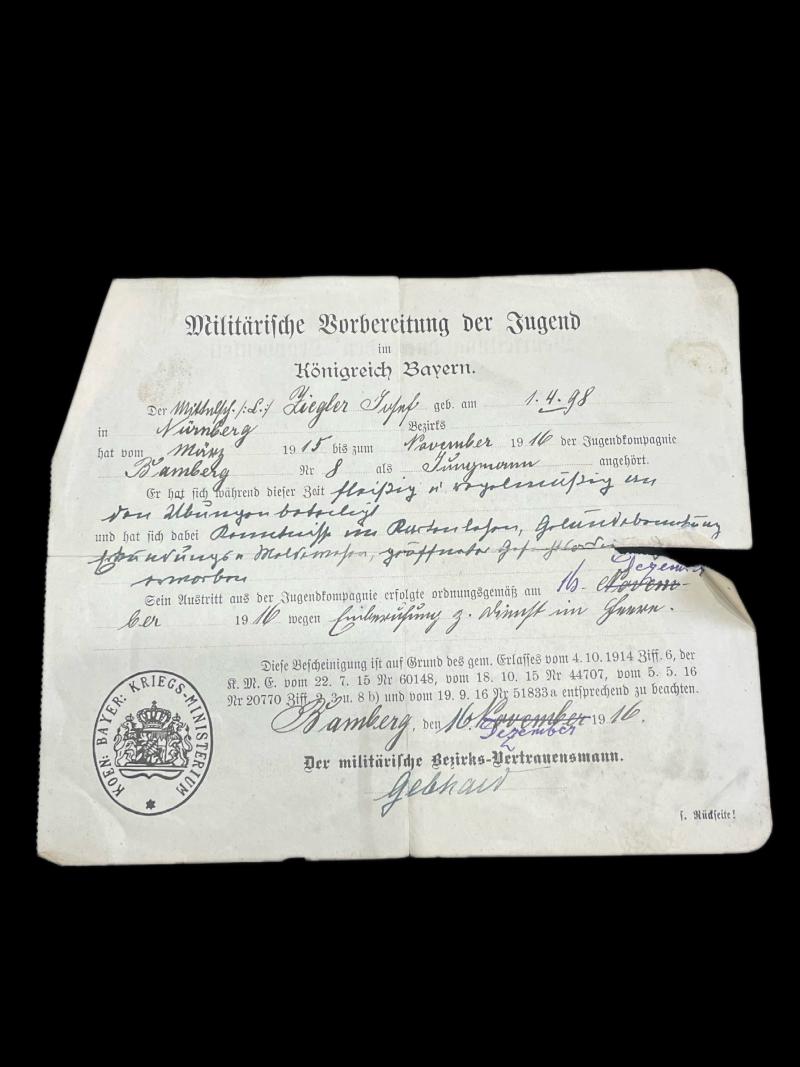 Militärische Vorbereitung der Jugend
im
Königreich Bayern.
Der Mittelsch. /:L.:/ Ziegler Josef geb. am 1.4.98
in Nürnberg Bezirks
hat vom März 1915 bis zum November 1916 der Jugendkompagnie
Bamberg Nr 8 als Jungmann angehört.
Er hat sich während dieser Zeit fleißig u regelmäßig an
den Übungen beteiligt
und hat sich dabei Kenntnisse im Kartenlesen, Geländebenützung
Erkundungs u Meldewesen, geöffneter
erworben
Dezember
Sein Austritt aus der Jugendkompagnie erfolgte ordnungsgemäß am 16. Novem-
ber 1916 wegen Einberufung z. Dienst im Heere.
Diese Bescheinigung ist auf Grund des gem. Erlasses vom 4.10.1914 Ziff. 6, der
K. M. E. vom 22. 7. 15 Nr 60148, vom 18. 10. 15 Nr 44707, vom 5. 5. 16
Nr 20770 Ziff. 2, 3 u. 8 b) und vom 19. 9. 16 Nr 51833a entsprechend zu beachten.
Bamberg, den 16. November 1916.
Dezember
Der militärische Bezirks-Vertrauensmann.
Gebhard
KOEN: BAYER: KRIEGS-MINISTERIUM
s. Rückseite!